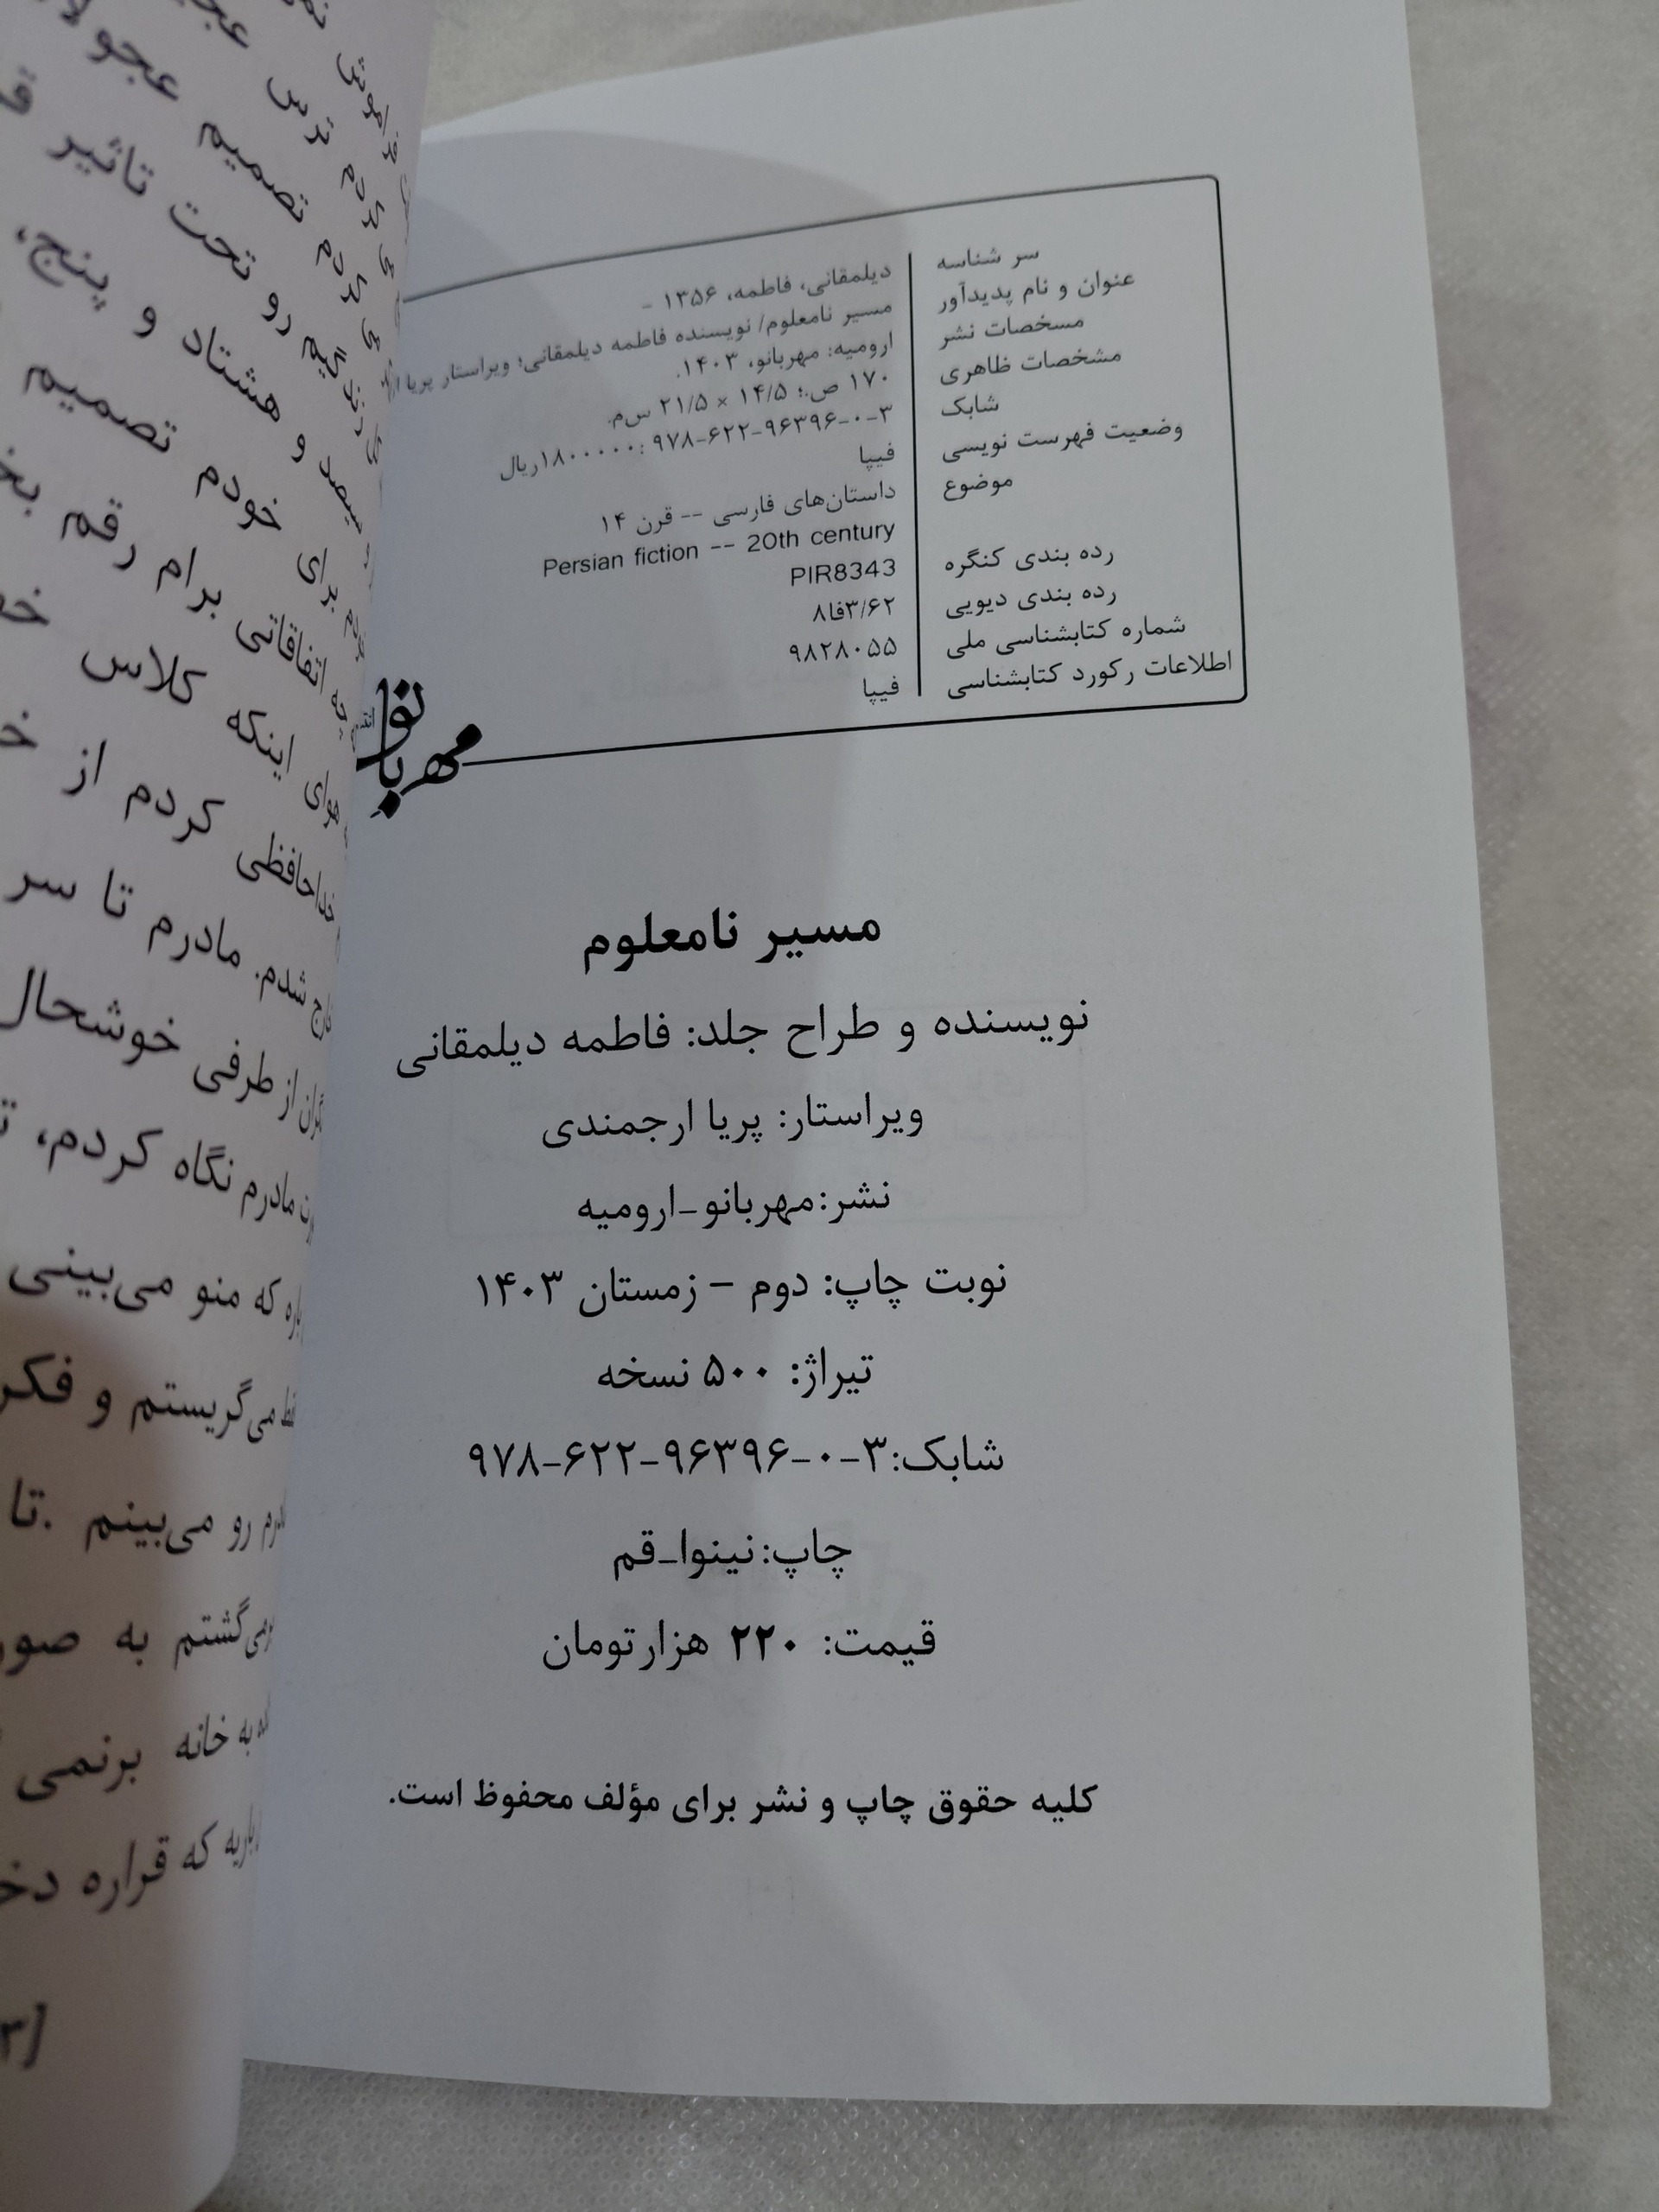 سر شناسه دیلمقانی، فاطمه، ۱۳۵۶ -
عنوان و نام پدیدآور مسیر نامعلوم/ نویسنده فاطمه دیلمقانی؛ ویراستار پریا
مسخصات نشر ارومیه: مهربانو، ۱۴۰۳.
مشخصات ظاهری ۱۷۰ ص.؛ ۱۴/۵ × ۲۱/۵ س‌م.
شابک ۹۷۸-۶۲۲-۹۶۳۹۶-۰-۳ :۱۸۰۰۰۰۰ریال
وضعیت فهرست نویسی فیپا
موضوع داستان‌های فارسی -- قرن ۱۴
Persian fiction -- 20th century
رده بندی کنگره PIR8343
رده بندی دیویی ۸فا۳/۶۲
شماره کتابشناسی ملی ۹۸۲۸۰۵۵
اطلاعات رکورد کتابشناسی فیپا
مهربانو
مسیر نامعلوم
نویسنده و طراح جلد: فاطمه دیلمقانی
ویراستار: پریا ارجمندی
نشر:مهربانو-ارومیه
نوبت چاپ: دوم – زمستان ۱۴۰۳
تیراژ: ۵۰۰ نسخه
شابک:۳-۰-۹۶۳۹۶-۶۲۲-۹۷۸
چاپ:نینوا-قم
قیمت: ۲۲۰ هزارتومان
کلیه حقوق چاپ و نشر برای مؤلف محفوظ است.
فراموش
کردم ترس
کردم تصمیم عجولا
زندگیم رو تحت تاثیر
صد و هشتاد و پنج،
برای خودم تصمیم
چه اتفاقاتی برام رقم
هوای اینکه کلاس
خداحافظی کردم از
شدم. مادرم تا سر
از طرفی خوشحال
مادرم نگاه کردم،
که منو می‌بینی
می‌گریستم و فکر
رو می‌بینم .تا
برمی‌گشتم به
به خانه برنمی
که قراره